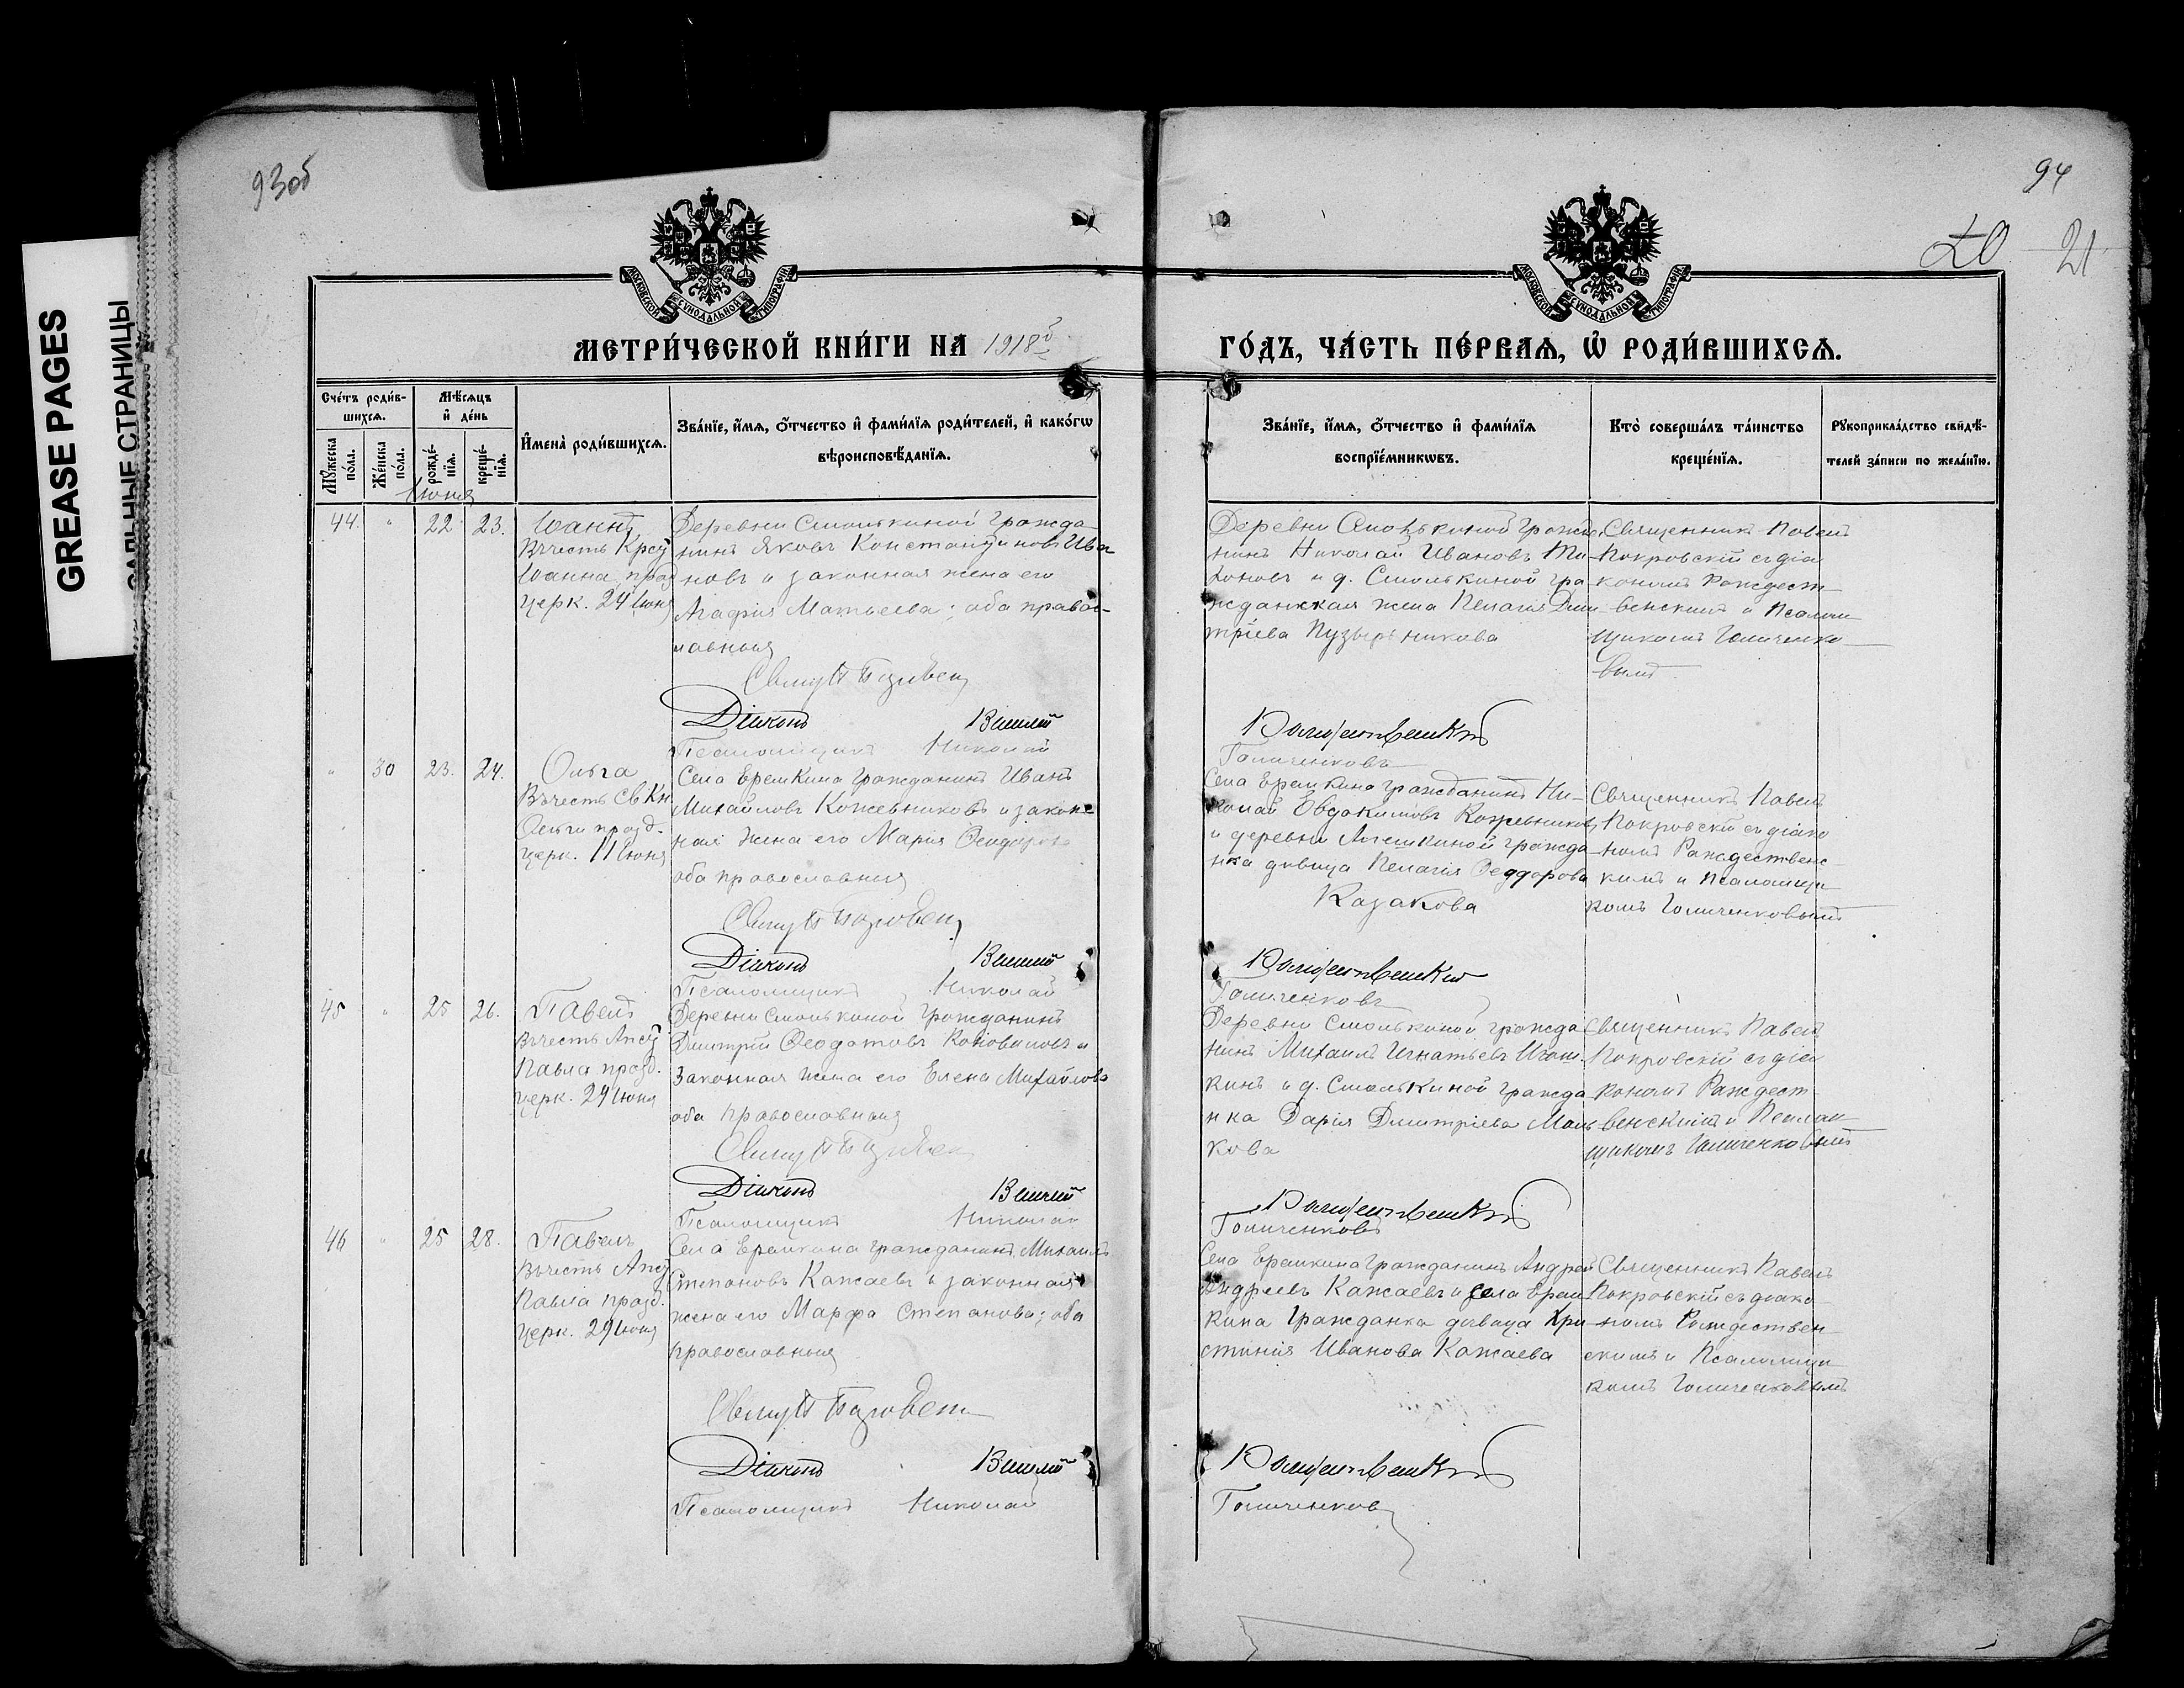 93об
94
20 21
GREASE PAGES
САЛЬНЫЕ СТРАНИЦЫ
МОСКОВСКОЙ СѴНОДАЛЬНОЙ ТИПОГРАФІИ
МОСКОВСКОЙ СѴНОДАЛЬНОЙ ТИПОГРАФІИ
МЕТРИ́ЧЕСКОЙ КНИ́ГИ НА 1918й
ГО́ДЪ, ЧА́СТЬ ПЕ́РВАѦ, Ѡ҆ РОДИ́ВШИХСѦ.
Сче́тъ роди́в-
шихсѧ.
Мѣ́сѧцъ
и҆ де́нь
Мꙋ́жеска
по́ла.
Же́нска
по́ла.
рожде́-
нїѧ.
креще́-
нїѧ.
И҆мена̀ роди́вшихсѧ.
Зва́нїе, и҆́мѧ, ѻ҆́тчество и҆ фами́лїѧ роди́телей, и҆ како́гѡ
вѣроисповѣ́данїѧ.
Зва́нїе, и҆́мѧ, ѻ҆́тчество и҆ фами́лїѧ
воспрїе́мникѡвъ.
Кто̀ соверша́лъ та́инство
креще́нїѧ.
Рꙋкоприкла́дство свидѣ́-
телей за́писи по жела́нїю.
Іюня
44. " 22 23. Іоаннъ
Въ честь Крест
Іоанна, празд
церк. 24 Іюня
Деревни Смолькиной гражда-
нинъ Яковъ Константиновъ Ива
новъ и законная жена его
Агафія Матвеева; оба право-
лавныя
Діаконъ Василій
Псаломщикъ Николай
Деревни Смолькиной гражда-
нинъ Николай Ивановъ Ти-
хоновъ и д. Смолькиной гра-
жданская жена Пелагія Дми-
тріева Пузырьникова
Рождественскій
Голиченковъ
Священникъ Павелъ
Покровскій съ діа
кономъ Рождест-
венскимъ и Псалом
щикомъ Голиченко-
вымъ
" 30 23. 24. Ольга
Въ честь Св. Кн
Ольги празд.
церк. 11 Іюня
Села Еремкина гражданинъ Иванъ
Михайловъ Кожевниковъ и закон-
ная жена его Марія Ѳеодорова
оба православныя
Діаконъ Василій
Псаломщикъ Николай
Села Еремкина гражданинъ Ни-
колай Евдокимовъ Кожевниковъ
и деревни Алешкиной гражда-
нка дѣвица Пелагія Ѳеодорова
Казакова
Рождественскій
Голиченковъ
Священникъ Павелъ
Покровскій съ діако
номъ Рождественс-
кимъ и Псаломщи-
комъ Голиченковымъ
45 " 25 26. Павелъ
Въ честь Апст
Павла празд.
церк. 29 Іюня
Деревни Смолькиной гражданинъ
Дмитрій Ѳеодотовъ Коноваловъ и
законная жена его Елена Михайлова
оба православныя
Діаконъ Василій
Псаломщикъ Николай
Деревни Смолькиной гражда
нинъ Михаилъ Игнатьевъ
кинъ и д. Смолькиной гражда
нка Дарія Дмитріева
кова
Рождественскій
Голиченковъ
Священникъ Павелъ
Покровскій съ діа
кономъ Рождест-
венскимъ и Псалом-
щикомъ Голиченковымъ
46 " 25 28. Павелъ
Въ честь Апст
Павла празд.
церк. 29 Іюня
Села Еремкина гражданинъ Михаилъ
Степановъ Кажаевъ и законная
жена его Марфа Степанова; оба
православныя
Діаконъ Василій
Псаломщикъ Николай
Села Еремкина гражданинъ Андрей
Андреевъ Кажаевъ и села Ерем-
кина гражданка дѣвица Хри-
стинія Иванова Кажаева
Рождественскій
Голиченковъ
Священникъ Павелъ
Покровскій съ діако-
номъ Рождествен-
скимъ и Псаломщи-
комъ Голиченковымъ